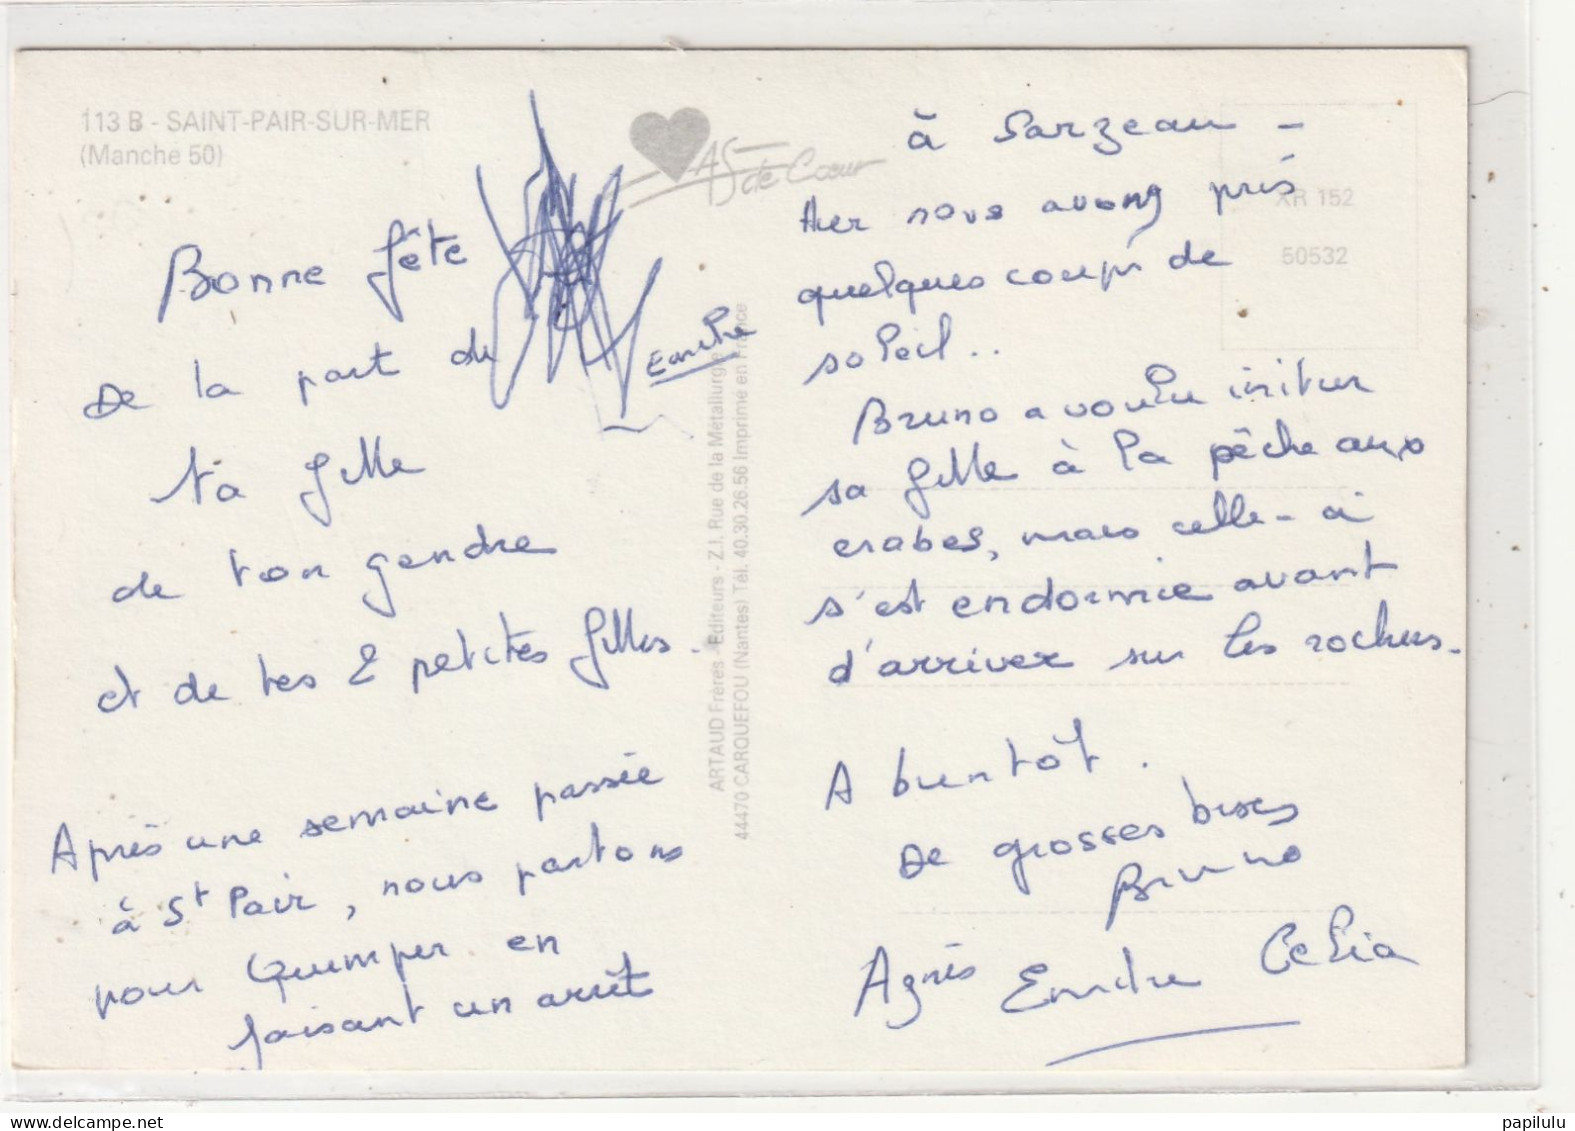 113 B - SAINT-PAIR-SUR-MER
(Manche 50)
AS de Cœur
Bonne fête
De la part de
ta fille
de ton gendre
et de tes 2 petites filles.
Après une semaine passée
à St Pair, nous partons
pour Quimper en
faisant un arrêt
ARTAUD Frères - Editeurs - Z.I. Rue de la Métallurgie
44470 CARQUEFOU (Nantes) Tél. 40.30.26.56 Imprimé en France
XR 152
50532
à Sarzeau -
Hier nous avons pris
quelques coups de
soleil..
Bruno a voulu initier
sa fille à la pêche aux
crabes, mais celle-ci
s'est endormie avant
d'arriver sur les rochers.
A bientôt.
De grosses bises
Bruno
Agnès Celia
papilulu